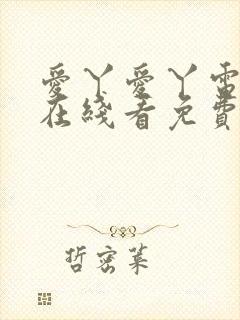 愛丫愛丫電
在綫看免費
哲密葉